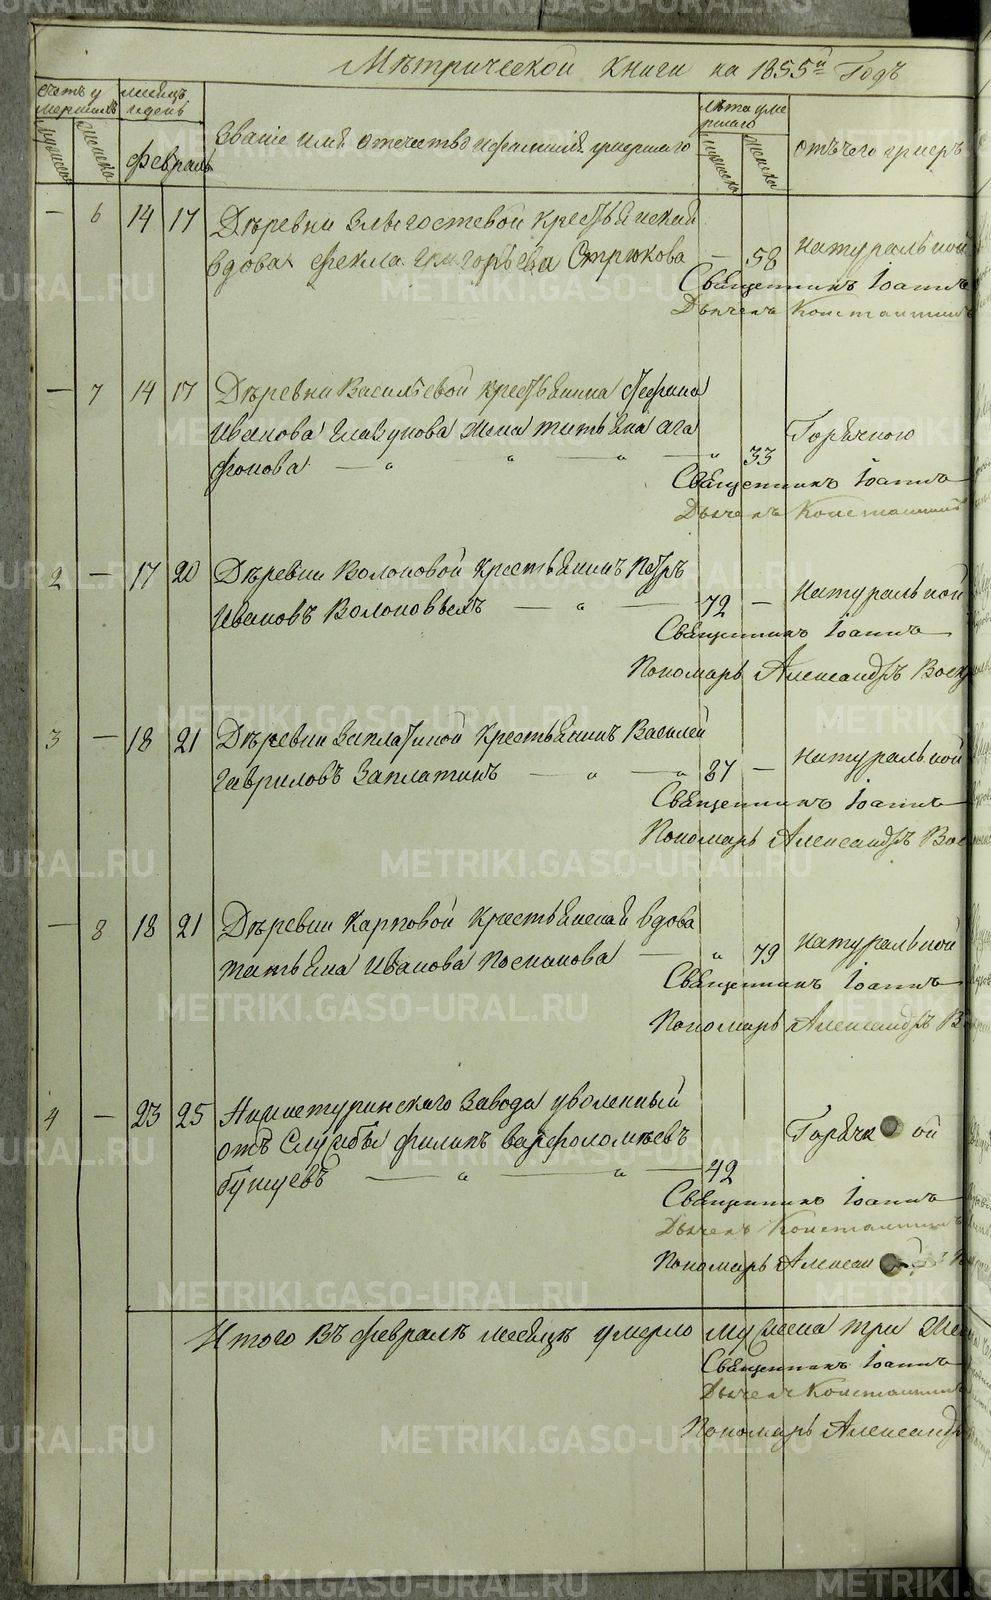 Метрической книги на 1855й Годъ
Счетъ умершихъ
Мѣсяцъ и день
Званіе имя отечество и фамилія умершаго
Лѣта умершаго
Отъ чего умеръ
мужеска
женска
Февраль
мужеска
женска
— 6 14 17 Деревни крестьянская
вдова Фекла Григорьева Стрюкова — 58 Натуральной
Священникъ Іоаннъ
Дьячекъ Константинъ
— 7 14 17 Деревни Васильевой крестьянина Стефана
Иванова Главунова жена Татьяна Ага
фонова — „ „ — „ — „ 33 Горячкою
Священникъ Іоаннъ
Дьячекъ Константинъ
2 — 17 20 Деревни Волоковой крестьянинъ Петръ
Ивановъ Волоковыхъ — „ — 72 — Натуральной
Священникъ Іоаннъ
Пономарь Александръ Воскр
3 — 18 21 Деревни Заплатиной крестьянинъ Василей
Гавриловъ Заплатинъ — „ — „ 87 — Натуральной
Священникъ Іоаннъ
Пономарь Александръ Вос
— 8 18 21 Деревни Карповой крестьянская вдова
Татьяна Иванова — „ 79 Натуральной
Священникъ Іоаннъ
Пономарь Александръ В
4 — 23 25 завода уволенный
отъ службы Филипъ Варфоломѣевъ
— „ — „ — 42 Горячк ой
Священникъ Іоаннъ
Дьячекъ Константинъ
Пономарь Алексан
Итого въ февралѣ месяцѣ умерло мужеска три Жен
Священникъ Іоаннъ
Дьячекъ Константинъ
Пономарь Александръ
METRIKI.GASO-URAL.RU